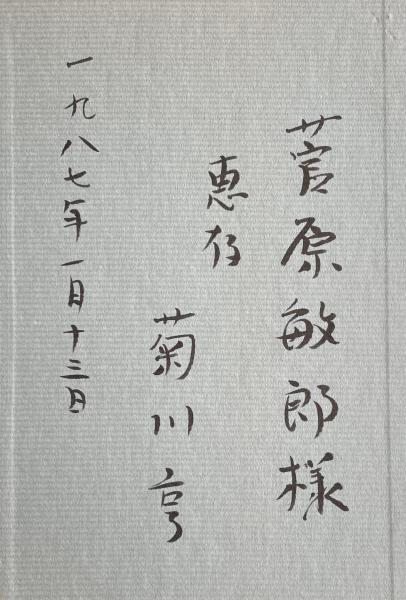 菅原敏郎様
恵存
菊川亨
一九八七年一月十三日